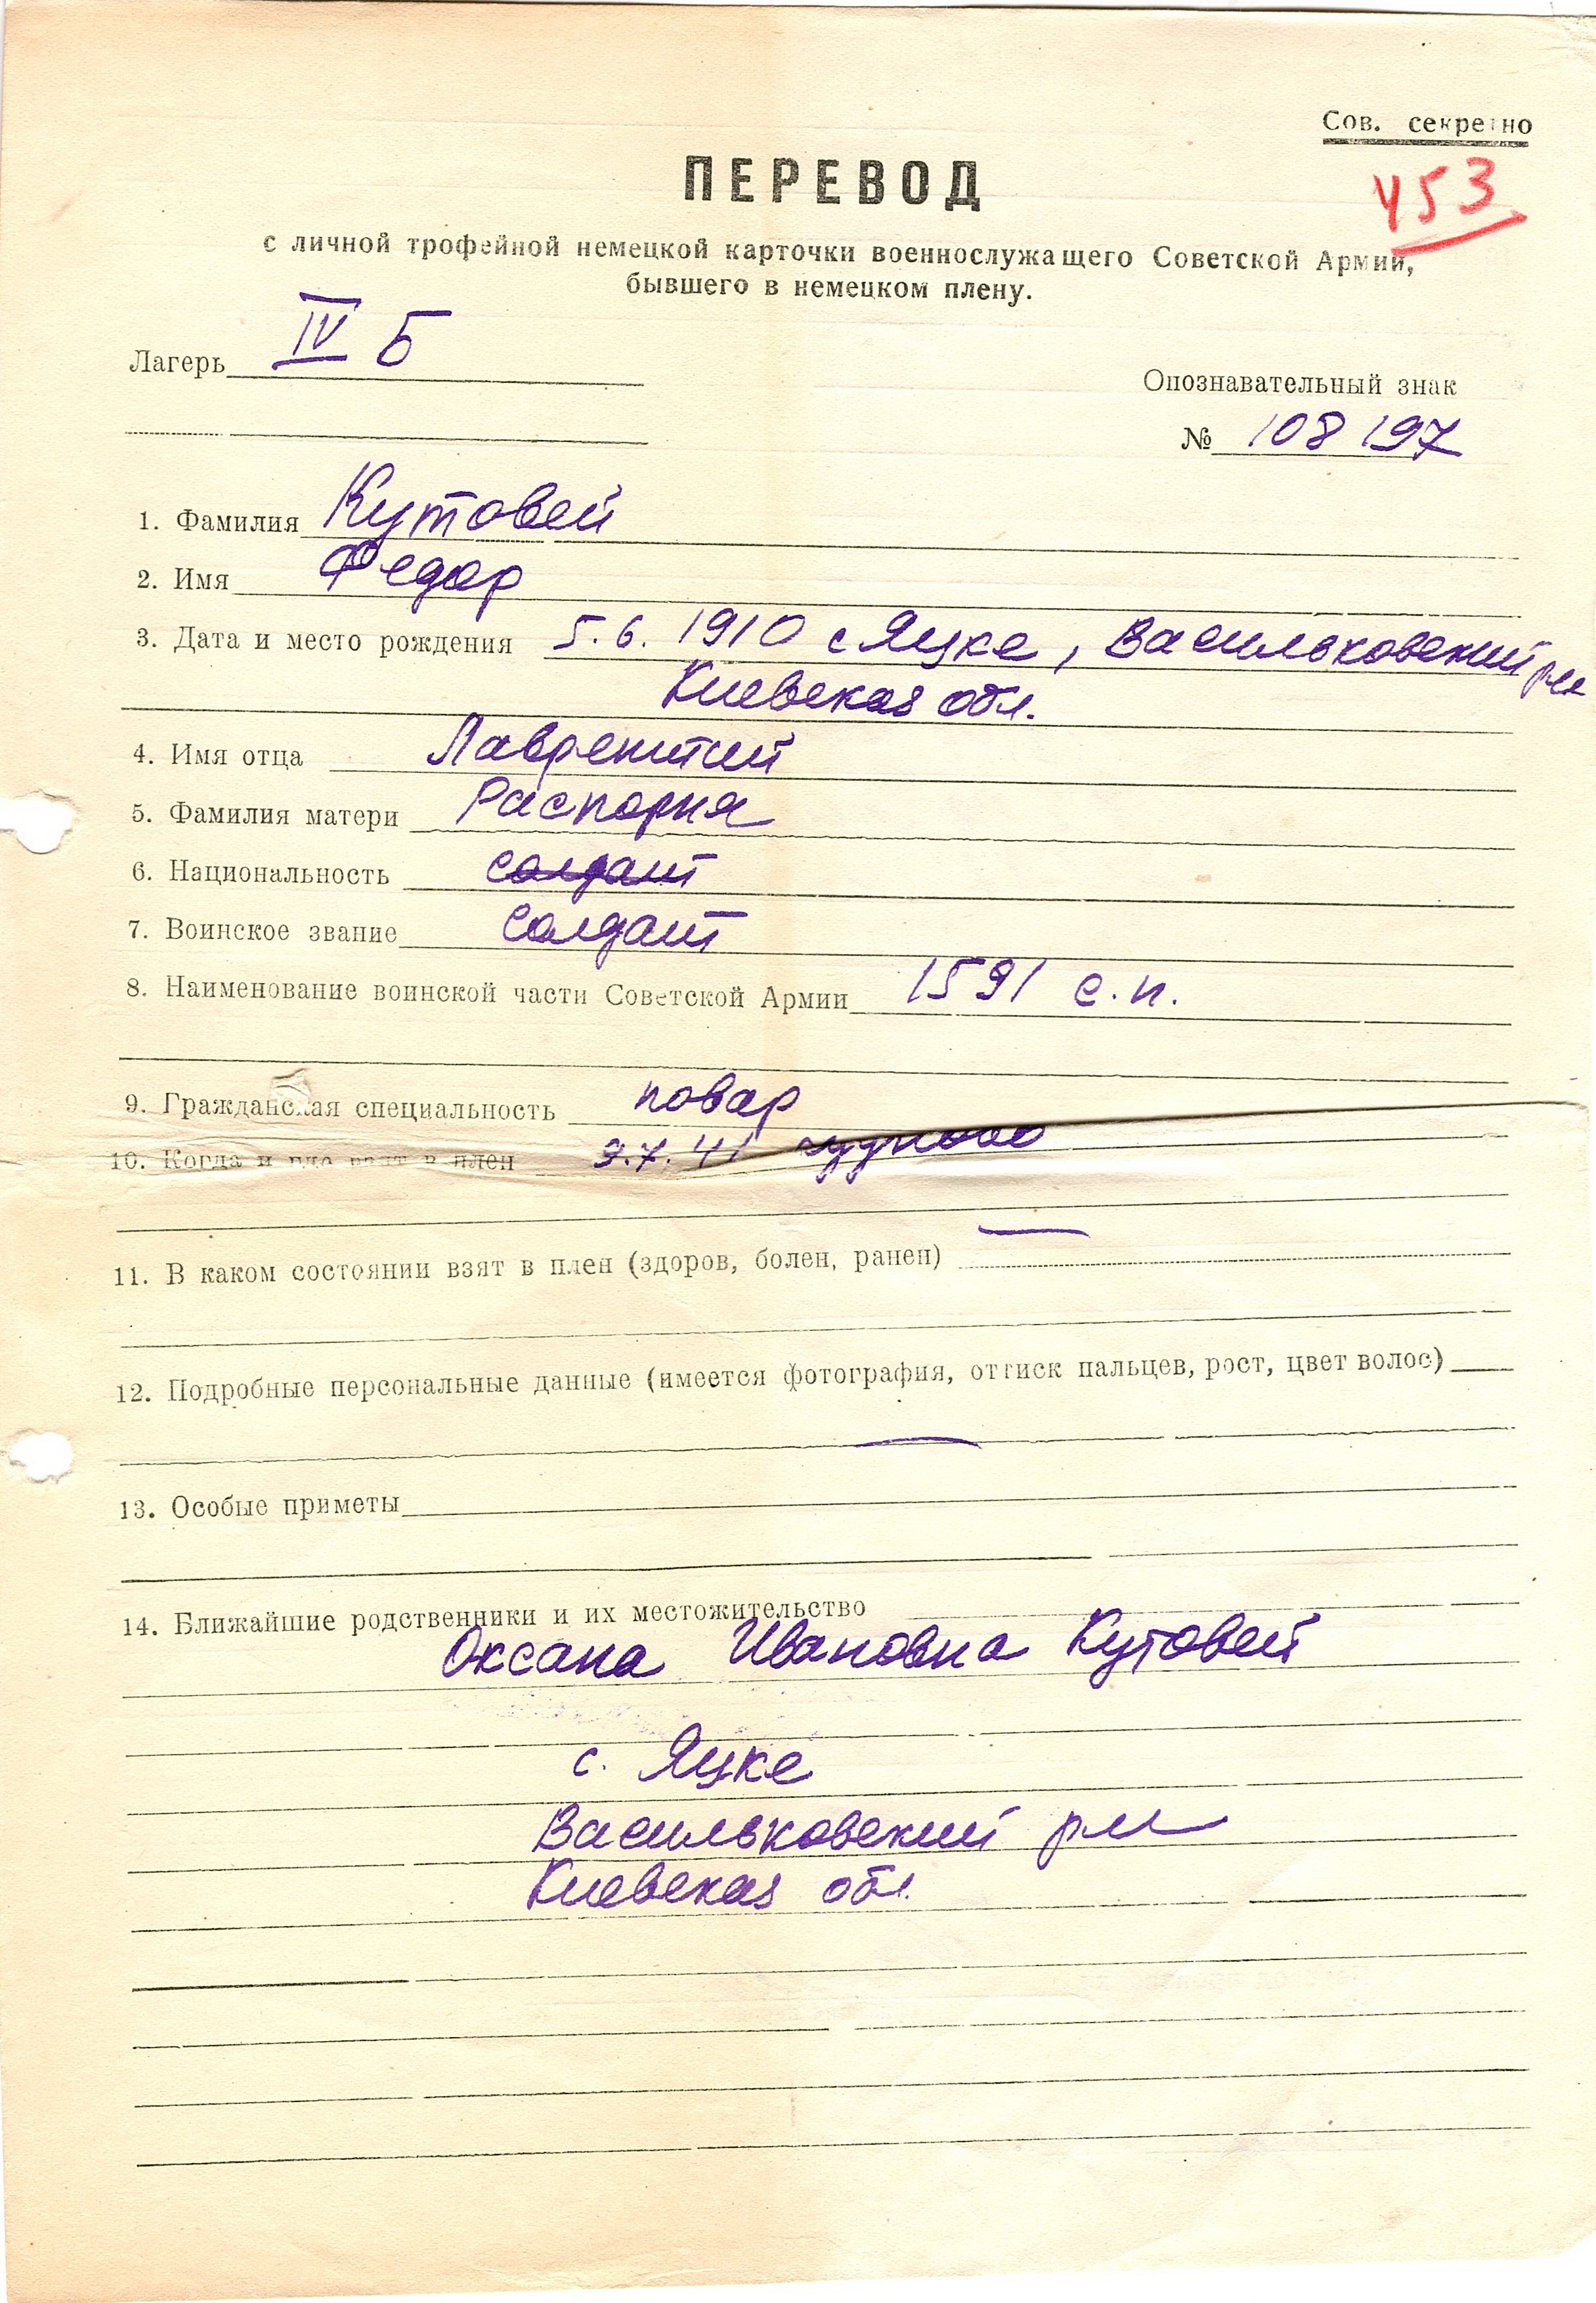 Сов. секретно
453
ПЕРЕВОД
с личной трофейной немецкой карточки военнослужащего Советской Армии,
бывшего в немецком плену.
Лагерь IV Б
Опознавательный знак
№ 108 197
1. Фамилия Кутовей
2. Имя Федор
3. Дата и место рождения 5.6. 1910 с Яцке, Васильковский
Киевская обл.
4. Имя отца Лаврентий
5. Фамилия матери Распорня
6. Национальность солдат
7. Воинское звание солдат
8. Наименование воинской части Советской Армии 1591 с.п.
9. Гражданская специальность повар
10. Когда и где взят в плен 9.7.41
11. В каком состоянии взят в плен (здоров, болен, ранен) —
12. Подробные персональные данные (имеется фотография, оттиск пальцев, рост, цвет волос)
—
13. Особые приметы
14. Ближайшие родственники и их местожительство
Оксана Ивановна Кутовей
с. Яцке
Васильковский р-н
Киевская обл.